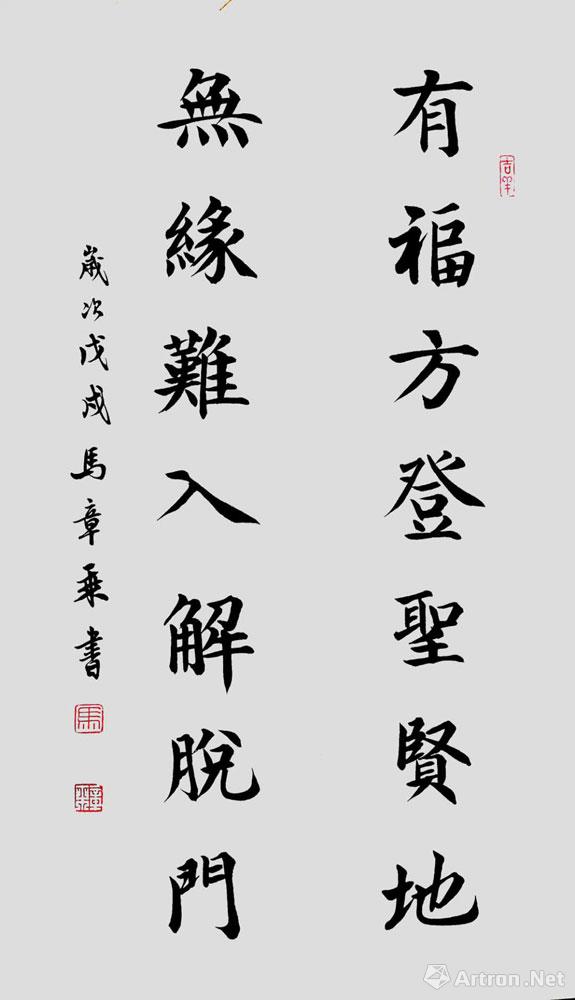 有福方登聖賢地
無緣難入解脫門
歲次戊戌馬章乘書
吉羊
馬
Artron.Net